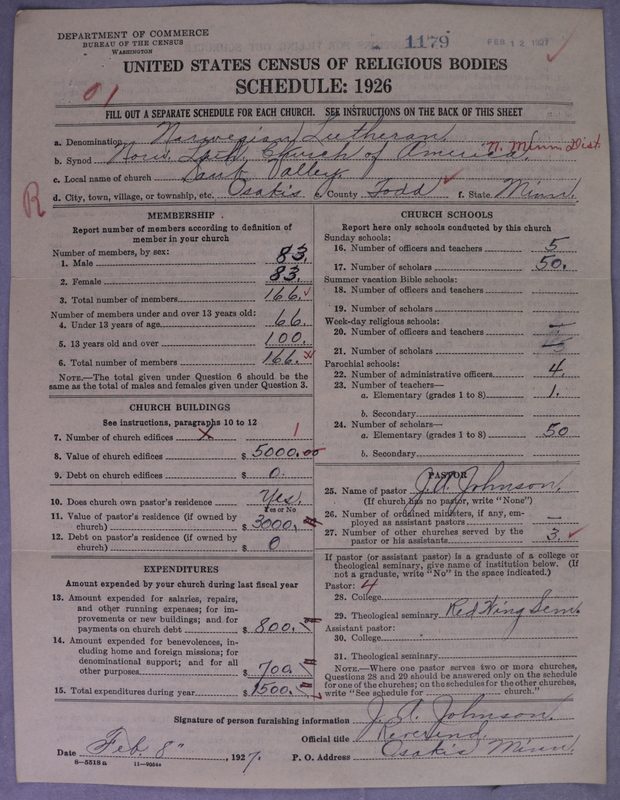 DEPARTMENT OF COMMERCE
BUREAU OF THE CENSUS
WASHINGTON
1179
FEB 12 1927
UNITED STATES CENSUS OF RELIGIOUS BODIES
SCHEDULE: 1926
01
FILL OUT A SEPARATE SCHEDULE FOR EACH CHURCH. SEE INSTRUCTIONS ON THE BACK OF THIS SHEET
a. Denomination Norwegian Lutheran
b. Synod Norw. Luth. Church of America. N. Minn Dist.
c. Local name of church Sauk Valley
R
d. City, town, village, or township, etc. Osakis e. County Todd f. State Minn.
MEMBERSHIP
Report number of members according to definition of
member in your church
Number of members, by sex:
1. Male 83.
2. Female 83.
3. Total number of members 166.
Number of members under and over 13 years old:
4. Under 13 years of age 66.
5. 13 years old and over 100.
6. Total number of members 166.
NOTE.—The total given under Question 6 should be
same as the total of males and females given under Question 3.
CHURCH BUILDINGS
See instructions, paragraphs 10 to 12
7. Number of church edifices x 1
8. Value of church edifices $ 5000.00
9. Debt on church edifices $ 0.
10. Does church own pastor's residence Yes.
Yes or No
11. Value of pastor's residence (if owned by
church) $ 3000.
12. Debt on pastor's residence (if owned by
church) $ 0
EXPENDITURES
Amount expended by your church during last fiscal year
13. Amount expended for salaries, repairs,
and other running expenses; for im-
provements or new buildings; and for
payments on church debt $ 800.
14. Amount expended for benevolences, in-
cluding home and foreign missions; for
denominational support; and for all
other purposes $ 700.
15. Total expenditures during year $ 1500.
CHURCH SCHOOLS
Report here only schools conducted by this church
Sunday schools:
16. Number of officers and teachers 5
17. Number of scholars 50.
Summer vacation Bible schools:
18. Number of officers and teachers
19. Number of scholars
Week-day religious schools:
20. Number of officers and teachers
21. Number of scholars
Parochial schools:
22. Number of administrative officers 4.
23. Number of teachers—
a. Elementary (grades 1 to 8) 1.
b. Secondary
24. Number of scholars—
a. Elementary (grades 1 to 8) 50
b. Secondary
PASTOR
25. Name of pastor J. A. Johnson.
(If church has no pastor, write "None")
26. Number of ordained ministers, if any, em-
ployed as assistant pastors —
27. Number of other churches served by the
pastor or his assistants 3.
If pastor (or assistant pastor) is a graduate of a college or
theological seminary, give name of institution below. (If
not a graduate, write "No" in the space indicated.)
Pastor: 4
28. College
29. Theological seminary Red Wing Sem.
Assistant pastor:
30. College
31. Theological seminary
NOTE.—Where one pastor serves two or more churches,
Questions 28 and 29 should be answered only on the schedule
for one of the churches; on the schedules for the other churches,
write "See schedule for church."
Signature of person furnishing information J. A. Johnson.
Official title Reverend.
Date Feb. 8", 1927. P. O. Address Osakis Minn.
8-5518a 11-9064